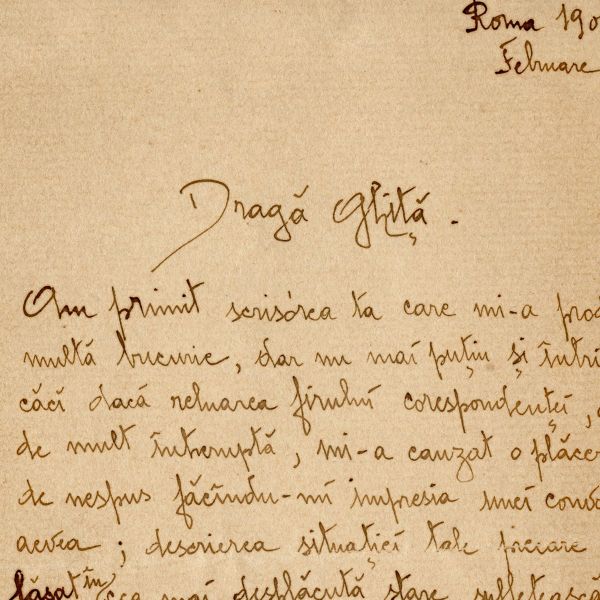 Roma 190
Februare
Dragă Ghiță.
Am primit scrisórea ta care mi-a prod
multă bucurie, dar nu mai puțin și întri
căcĭ dacă reluarea firuluĭ corespondențeĭ,
de mult întreruptă, mi-a cauzat o plăcer
de nespus făcîndu-mĭ impresia uneĭ conv
aevea; descrierea situațieĭ tale precare
lăsat în cea maĭ desplăcută stare sufletească